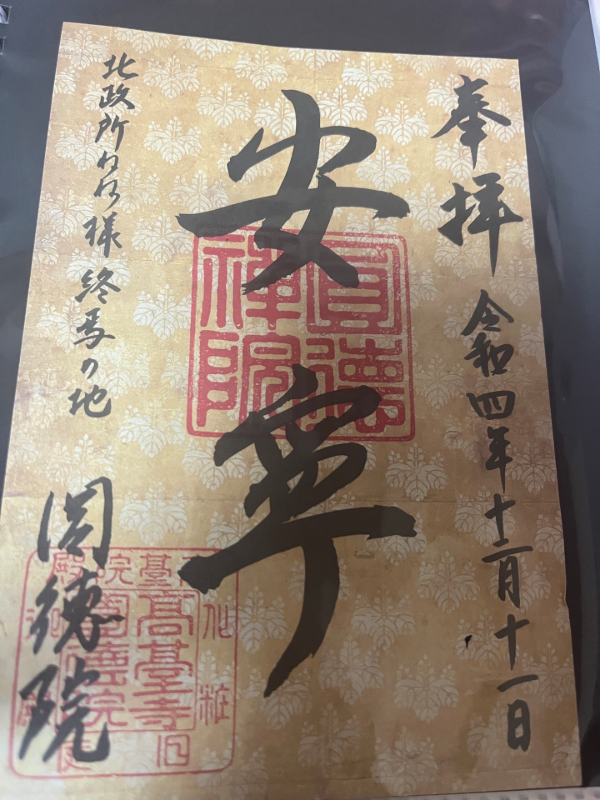 奉拝 令和四年十二月十一日
安寧
圓德
禪院
北政所ねね様終焉の地
圓徳院
高臺寺